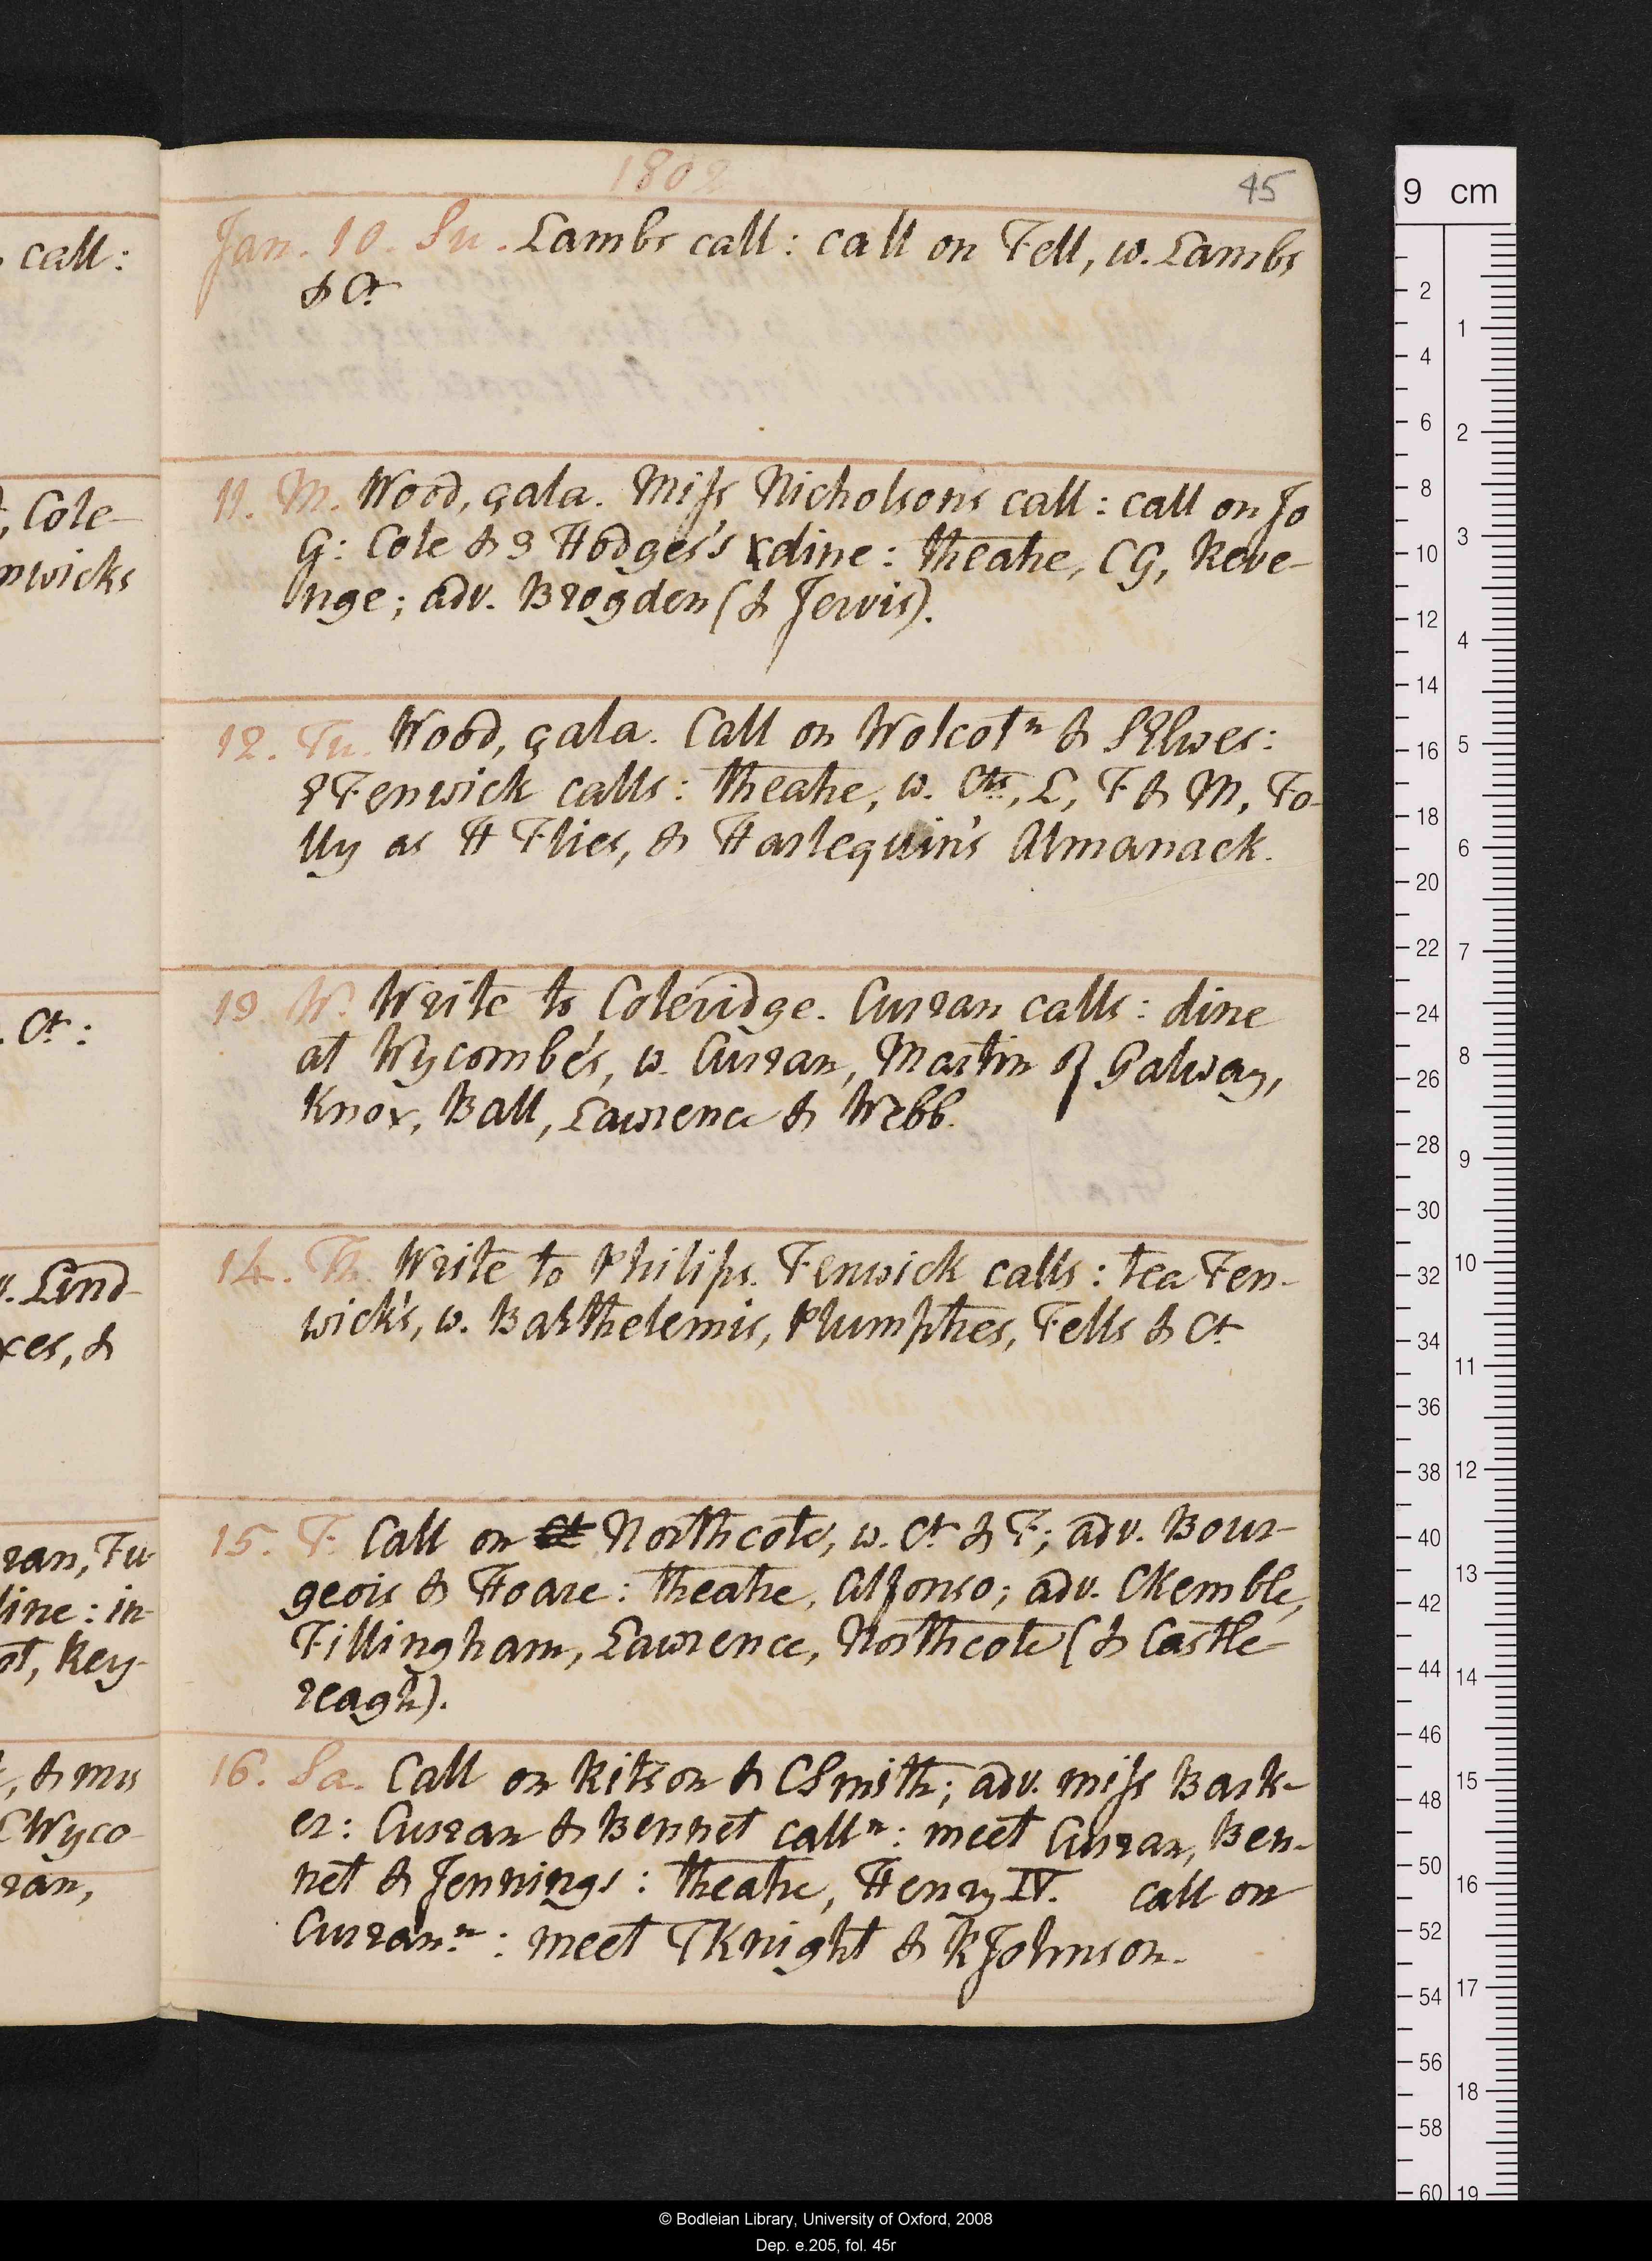 1802
45
Jan. 10. Su. Lambs call: call on Fell, w. Lambs
& Ct
11. M. Wood, gala. Miss Nicholsons call: call on Jo
G: Cole & 3 Hodges's dine: theatre, CG, Reve-
nge; adv. Brogden (& Jervis).
12. Tu. Wood, gala. Call on Wolcot n & SElwes:
Fenwick calls: theatre, w. Cts, L, F & M, Fo-
lly as it Flies, & Harlequin's Almanack.
13 W. Write to Coleridge. Curran calls: dine
at Wycombe's, w. Curran, Martin of Galway,
Knox, Ball, Lawrence & Webb.
14. Th. Write to Philips. Fenwick calls: tea Fen-
wick's, w. Barthelemis, Plumptres, Fells & Ct
15. F. Call on Ct Northcote, w. Ct & F; adv. Bour-
geois & Hoare: theatre, Alfonso; adv. CKemble,
Fillingham, Lawrence, Northcote (& Castle-
reagh).
16. Sa. Call on Ritson & CSmith; adv. miss Bark-
er: Curran & Bennet call n: meet Curran, Ben-
net & Jennings: theatre, Henry IV. call on
Curran n: meet TKnight & RJohnson.
call:
, Cole-
nwicks
. Ct:
. Lind-
xes, &
ran, Tu-
line: in-
ot, Rey-
, & mrs
CWyco-
ran,
9 cm
2
4
6
8
10
12
14
16
18
20
22
24
26
28
30
32
34
36
38
40
42
44
46
48
50
52
54
56
58
60
1
2
3
4
5
6
7
8
9
10
11
12
13
14
15
16
17
18
19
© Bodleian Library, University of Oxford, 2008
Dep. e.205, fol. 45r